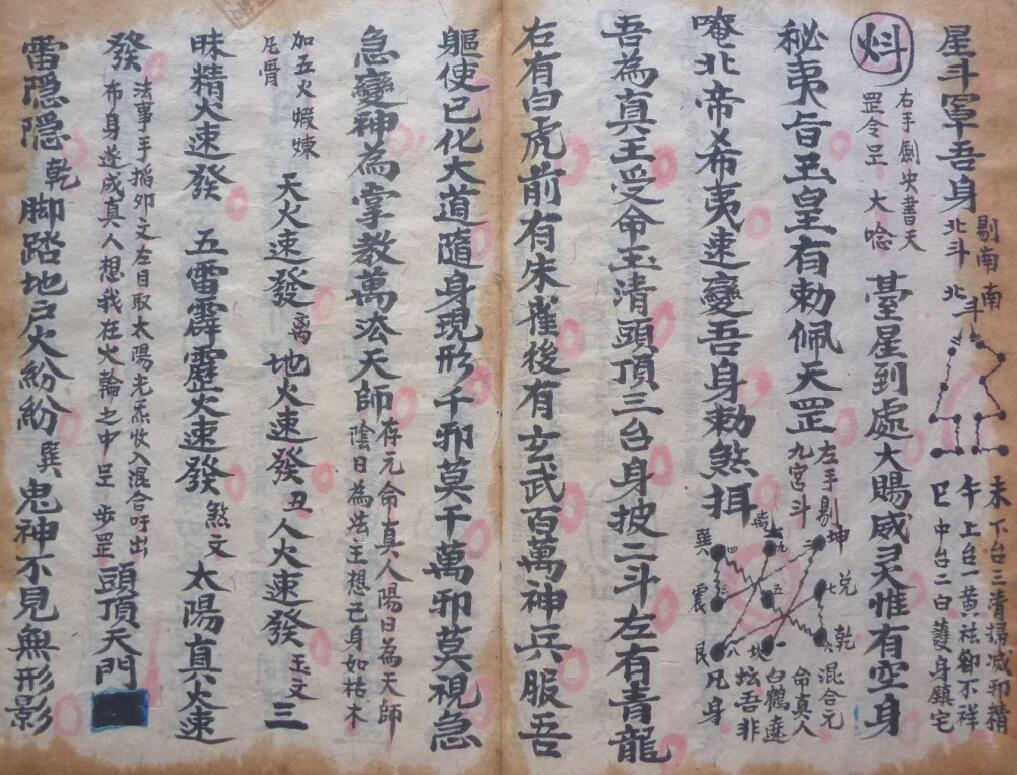 星斗罩吾身 北斗 剔南 北斗 南 巳中台二白護身鎮宅 午上台一黄祛卻不祥 未下台三清掃滅邪精
右手劍央書天罡令呈 大唸 臺星到處大賜威灵惟有空身
秘夷旨玉皇有勅佩天罡 左手剔九宮斗 坤 兌 七 乾 六 混合元命真人
唵北帝希夷速變吾身勅煞揖 巽 四 离 九 二 震 三 五 艮 八 坎 一 白鶴遶坛吾非凡身
吾為真王受命玉清頭頂三台身披二斗左有青龍
右有白虎前有朱雀後有玄武百萬神兵服吾
軀使已化大道隨身現形千邪莫干萬邪莫視急
急變神為掌教萬法天師 存元命真人陽日為天師陰日為法王想己身如枯木
加五火煅煉凡骨 天火速發 离 地火速發 丑 人火速發 玉文 三
昧精火速發 五雷霹靂火速發 煞文 太陽真火速
發 法事手搯卯文左目取太陽光炁收入混合吁出布身遂成真人想我在火輪之中呈步罡 頭頂天門
雷隠隠 乾 脚踏地戶火紛紛 巽 鬼神不見無形影